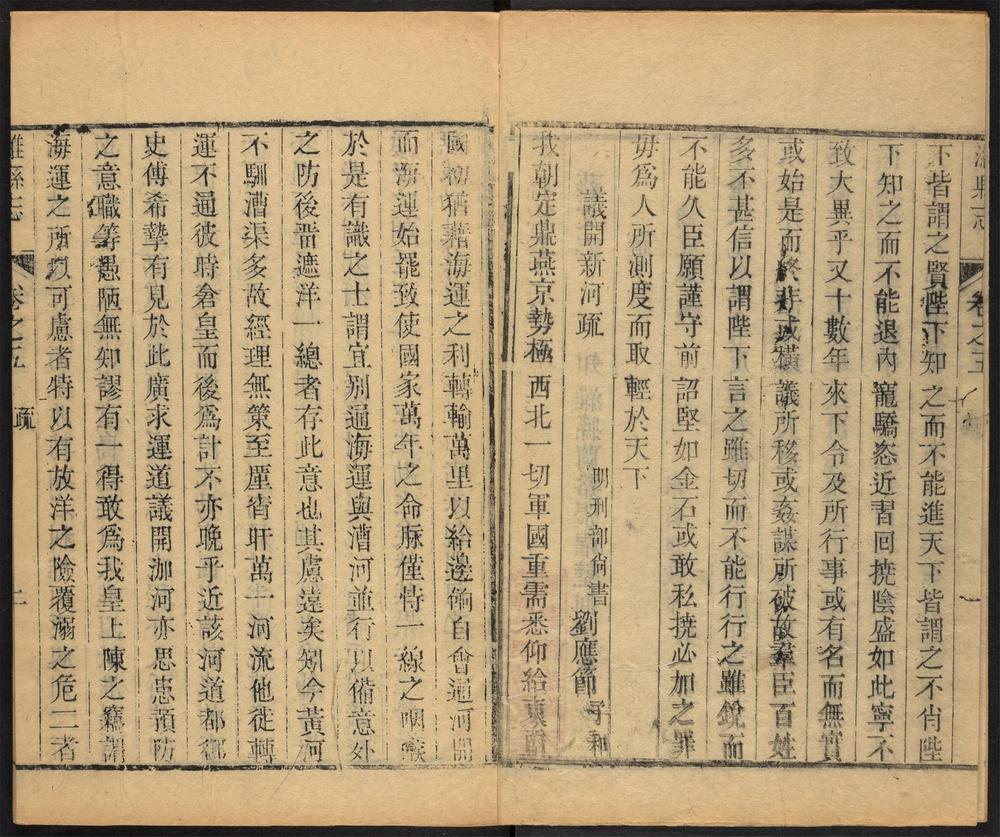 濰縣志
卷之五
一
下皆謂之賢陛下知之而不能進天下皆謂之不肖陛
下知之而不能退內寵驕恣近習回撓陰盛如此寧不
致大異乎又十數年來下令及所行事或有名而無實
或始是而終非或橫議所移或姦謀所破故羣臣百姓
多不甚信以謂陛下言之雖切而不能行行之雖銳而
不能久臣願謹守前詔堅如金石或敢私撓必加之罪
毋為人所測度而取輕於天下
議開新河疏
明刑部尙書劉應節子和
我朝定鼎燕京勢極西北一切軍國重需悉仰給東南
國初猶藉海運之利轉輸萬里以給邊餉自會通河開
而海運始罷致使國家萬年之命脉僅恃一線之咽喉
於是有識之士謂宜別通海運與漕河並行以備意外
之防後晋遮洋一總者存此意也其慮遠矣矧今黃河
不馴漕渠多故經理無策至厪宵旰萬一河流他徙轉
運不通彼時倉皇而後為計不亦晚乎近該河道都御
史傅希摯有見於此廣求運道議開泇河亦思患預防
之意職等愚陋無知謬有一得敢為我皇上陳之竊謂
海運之所以可慮者特以有放洋之險覆溺之危二者
濰縣志
卷之五
疏
二